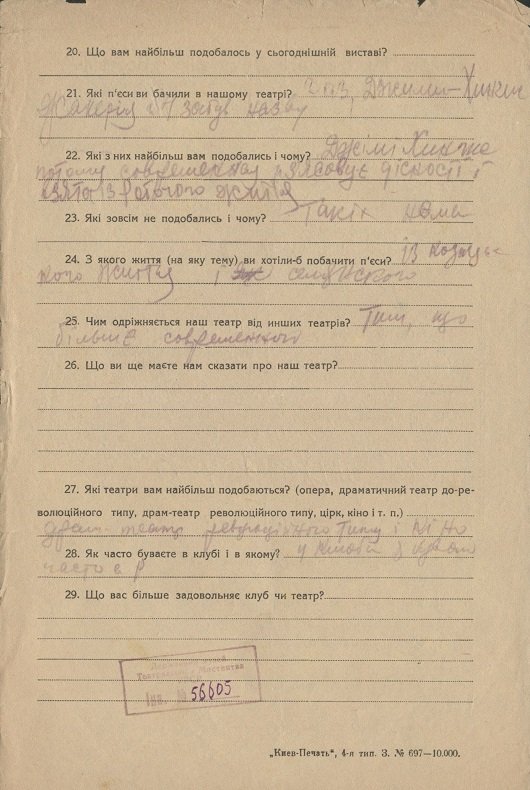 20. Що вам найбільш подобалось у сьогоднішній виставі?
21. Які п'єси ви бачили в нашому театрі? Газ, Джимми-Хикинс
Жакерія й забув назву
22. Які з них найбільш вам подобались і чому?
потому современная
23. Які зовсім не подобались і чому? Таких нема
24. З якого життя (на яку тему) ви хотіли-б побачити п'єси? Із козаць-
кого життя і селянского
25. Чим одріжняється наш театр від инших театрів? Тим, що
більше современого
26. Що ви ще маєте нам сказати про наш театр?
27. Які театри вам найбільш подобаються? (опера, драматичний театр до-ре-
волюційного типу, драм-театр революційного типу, цірк, кіно і т. п.)
драм-театр революційного типу і кіно
28. Як часто буваєте в клубі і в якому?
часто
29. Що вас більше задовольняє клуб чи театр?
Інв. № 56605
„Киев-Печать", 4-я тип. З. № 697—10.000.